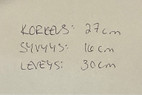 KORKEUS: 27cm
SYVYYS: 16cm
LEVEYS: 30cm